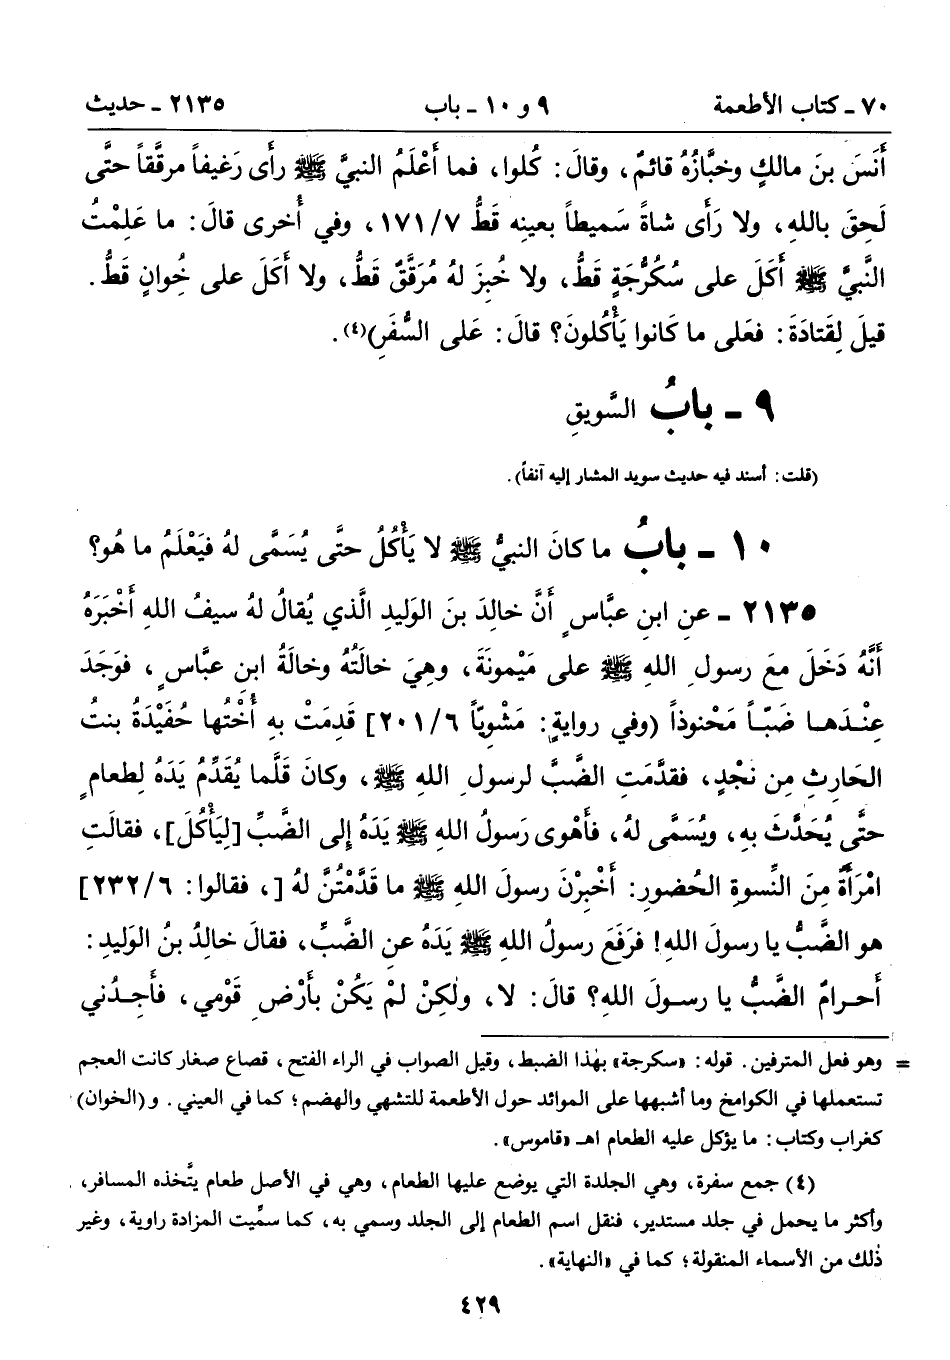 ٧٠ ـ كتاب الأطعمة ٩ و ١٠ ـ باب ٢١٣٥ ـ حديث
أَنَسَ بنَ مالكٍ وخبَّازُهُ قائمٌ، وقالَ: كُلوا، فما أَعْلَمُ النبيَّ ﷺ رأى رَغيفاً مرقَّقاً حتَّى
لَحِقَ باللهِ، ولا رَأَى شاةً سَميطاً بعينِه قطُّ ٧/١٧١، وفي أُخرى قالَ: ما عَلِمْتُ
النَّبيَّ ﷺ أَكَلَ على سُكُرُّجَةٍ قطُّ، ولا خُبِزَ لهُ مُرَقَّقٌ قَطُّ، ولا أَكَلَ على خُوانٍ قَطُّ.
قيلَ لِقَتادَةَ: فعَلى ما كَانوا يَأْكُلونَ؟ قالَ: عَلى السُّفَرِ)(٤).
٩ ـ بابُ السَّويقِ
(قلت: أسند فيه حديث سويد المشار إليه آنفاً).
١٠ ـ بابُ ما كانَ النبيُّ ﷺ لا يَأْكُلُ حتَّى يُسَمَّى لهُ فيَعْلَمُ ما هُو؟
٢١٣٥ ـ عنِ ابنِ عبَّاسٍ أَنَّ خالدَ بنَ الوَليدِ الَّذي يُقالُ لهُ سيفُ اللهِ أَخْبَرَهُ
أَنَّهُ دَخَلَ معَ رسولِ اللهِ ﷺ على مَيْمونَةَ، وهِيَ خالَتُهُ وخالَةُ ابنِ عبَّاسٍ، فوَجَدَ
عِنْدَهـا ضَبّـاً مَحْنوذاً (وفي روايةٍ: مَشْوِيّاً ٦/٢٠١] قَدِمَتْ بهِ أُخْتُها حُفَيْدَةُ بنتُ
الحَارثِ مِن نجْدٍ، فقدَّمَتِ الضَّبَّ لرسولِ اللهِ ﷺ، وكانَ قَلَّما يُقَدِّمُ يَدَهُ لِطعامٍ
حتَّى يُحَدَّثَ بهِ، ويُسَمَّى لهُ، فأَهْوى رَسولُ اللهِ ﷺ يَدَهُ إِلى الضَّبِّ [لِيَأْكُلَ]، فقالَتِ
امْرَأَةٌ مِنَ النِّسوةِ الحُضورِ: أَخْبِرْنَ رسولَ اللهِ ﷺ ما قَدَّمْتُنَّ لهُ [، فقالوا: ٦/٢٣٢]
هو الضَّبُّ يا رسولَ اللهِ! فرَفَعَ رسولُ اللهِ ﷺ يَدَهُ عنِ الضَّبِّ، فقالَ خالدُ بنُ الوَليدِ:
أَحرامٌ الضَّبُّ يا رسولَ اللهِ؟ قالَ: لا، ولٰكِنْ لمْ يَكُنْ بأَرْضِ قَوْمي، فأَجِدُني
= وهو فعل المترفين. قوله: «سكرجة» بهٰذا الضبط، وقيل الصواب في الراء الفتح، قصاع صغار كانت العجم
تستعملها في الكوامخ وما أشبهها على الموائد حول الأطعمة للتشهي والهضم؛ كما في العيني. و(الخوان)
كغراب وكتاب: ما يؤكل عليه الطعام اهـ «قاموس».
(٤) جمع سفرة، وهي الجلدة التي يوضع عليها الطعام، وهي في الأصل طعام يتَّخذه المسافر،
وأكثر ما يحمل في جلد مستدير، فنقل اسم الطعام إلى الجلد وسمي به، كما سمِّيت المزادة راوية، وغير
ذٰلك من الأسماء المنقولة؛ كما في «النهاية».
٤٢٩